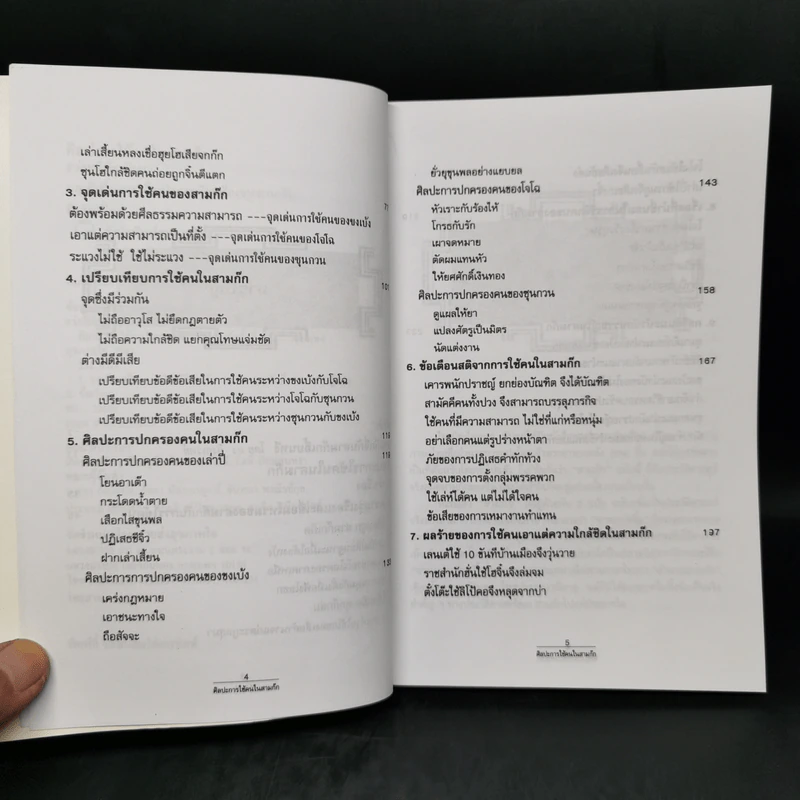 เล่าเสี้ยนหลงเชื่อฮุยโฮเสียจกก๊ก
ซุนโฮใกล้ชิดคนถ่อยถูกจิ้นตีแตก
3. จุดเด่นการใช้คนของสามก๊ก
ต้องพร้อมด้วยศีลธรรมความสามารถ ---จุดเด่นการใช้คนของขงเบ้ง
เอาแต่ความสามารถเป็นที่ตั้ง ---จุดเด่นการใช้คนของโจโฉ
ระแวงไม่ใช้ ใช้ไม่ระแวง ---จุดเด่นการใช้คนของซุนกวน
4. เปรียบเทียบการใช้คนในสามก๊ก
จุดซึ่งมีร่วมกัน
ไม่ถืออาวุโส ไม่ยึดกฎตายตัว
ไม่ถือความใกล้ชิด แยกคุณโทษแจ่มชัด
ต่างมีดีมีเสีย
เปรียบเทียบข้อดีข้อเสียในการใช้คนระหว่างขงเบ้งกับโจโฉ
เปรียบเทียบข้อดีข้อเสียในการใช้คนระหว่างโจโฉกับซุนกวน
เปรียบเทียบข้อดีข้อเสียในการใช้คนระหว่างซุนกวนกับขงเบ้ง
5. ศิลปะการปกครองคนในสามก๊ก
ศิลปะการปกครองคนของเล่าปี่
โยนอาเต๊า
กระโดดน้ำตาย
เสือกไสขุนพล
ปฏิเสธชีจิ๋ว
ฝากเล่าเสี้ยน
ศิลปะการการปกครองคนของขงเบ้ง
เคร่งกฎหมาย
เอาชนะทางใจ
ถือสัจจะ
4
ศิลปะการใช้คนในสามก๊ก
ยั่วยุขุนพลอย่างแยบยล
ศิลปะการปกครองคนของโจโฉ 143
หัวเราะกับร้องไห้
โกรธกับรัก
เผาจดหมาย
ตัดผมแทนหัว
ให้ยศศักดิ์เงินทอง
ศิลปะการปกครองคนของซุนกวน 158
ดูแผลให้ยา
แปลงศัตรูเป็นมิตร
นัดแต่งงาน
6. ข้อเตือนสติจากการใช้คนในสามก๊ก 167
เคารพนักปราชญ์ ยกย่องบัณฑิต จึงได้บัณฑิต
สามัคคีคนทั้งปวง จึงสามารถบรรลุภารกิจ
ใช้คนที่มีความสามารถ ไม่ใช่ที่แก่หรือหนุ่ม
อย่าเลือกคนแต่รูปร่างหน้าตา
ภัยของการปฏิเสธคำทักท้วง
จุดจบของการตั้งกลุ่มพรรคพวก
ใช้เล่ห์ได้คน แต่ไม่ได้ใจคน
ข้อเสียของการเหมางานทำแทน
7. ผลร้ายของการใช้คนเอาแต่ความใกล้ชิดในสามก๊ก 197
เลนเต้ใช้ 10 ขันทีบ้านเมืองจึงวุ่นวาย
ราชสำนักฮั่นใช้โฮจิ๋นจึงล่มจม
ตั๋งโต๊ะใช้ลิโป้คอจึงหลุดจากบ่า
5
ศิลปะการใช้คนในสามก๊ก